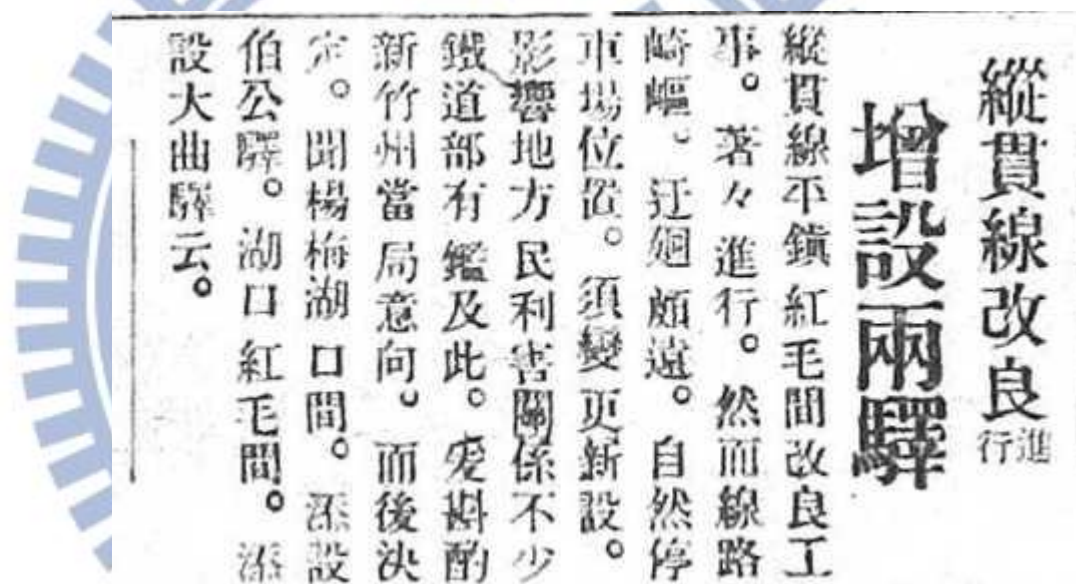 縱貫線改良進行
增設兩驛
縱貫線平鎭紅毛間改良工
事。著々進行。然而線路
崎嶇。迂廻頗遠。自然停
車場位置。須變更新設。
影響地方民利害關係不少
鐵道部有鑑及此。爰斟酌
新竹州當局意向。而後決
定。聞楊梅湖口間。添設
伯公驛。湖口紅毛間。添
設大曲驛云。